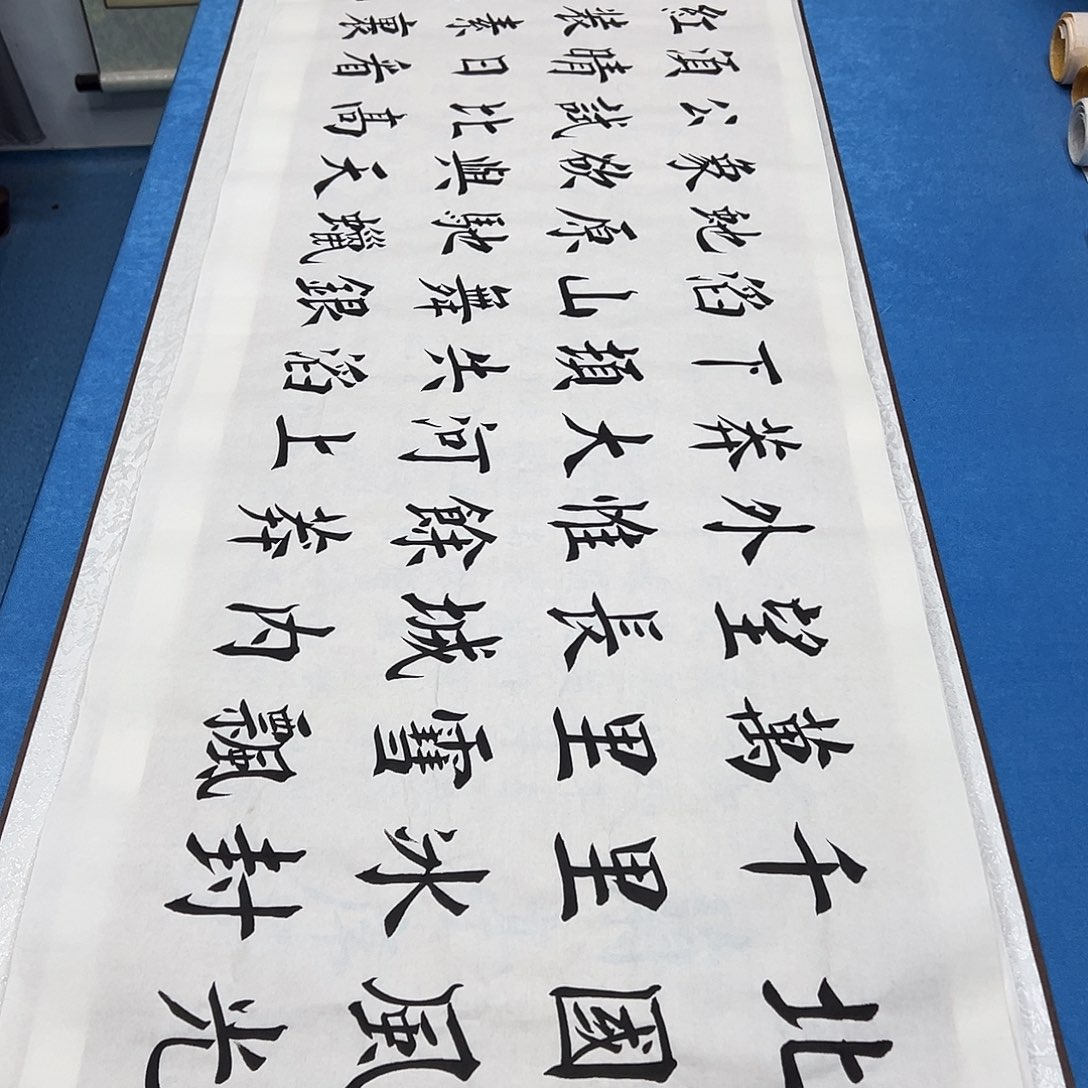 北國風光
千里冰封
萬里雪飄
望長城内
外惟餘莽
莽大河上
下頓失滔
滔山舞銀
蛇原馳蠟
象欲與天
公試比高
須晴日看
紅裝素裹